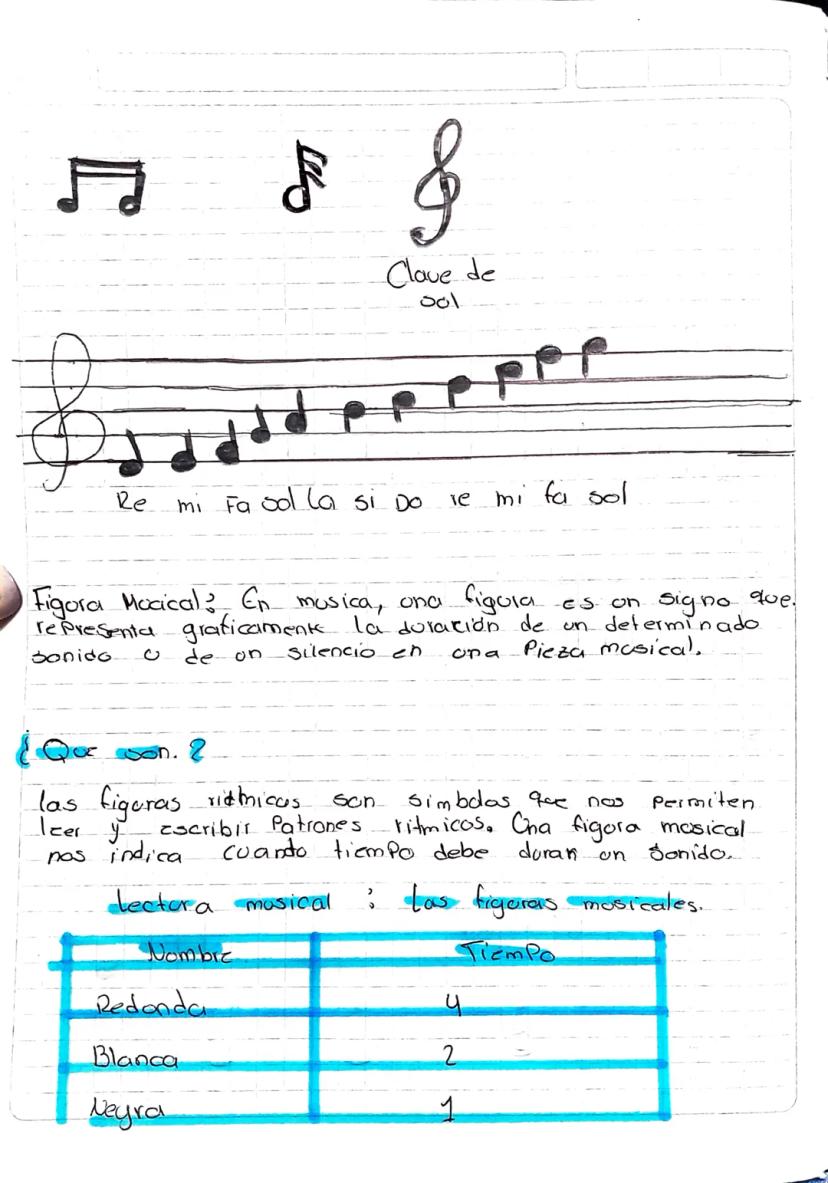 Clave de
sol
Re mi Fa sol la si Do re mi fa sol
Figura Mucical: En musica, una figura es un signo que.
representa graficamente la duración de un determinado
sonido o de un silencio en una Pieza musical.
¿Que son.?
las figuras ridmicas son simbolos que nos Permiten
leer y escribir Patrones ritmicos. Una figura musical
nos indica cuanto tiempo debe duran un sonido.
Lectura musical : Las figuras musicales.
Nombre Tiempo
Redonda 4
Blanca 2
Negra 1